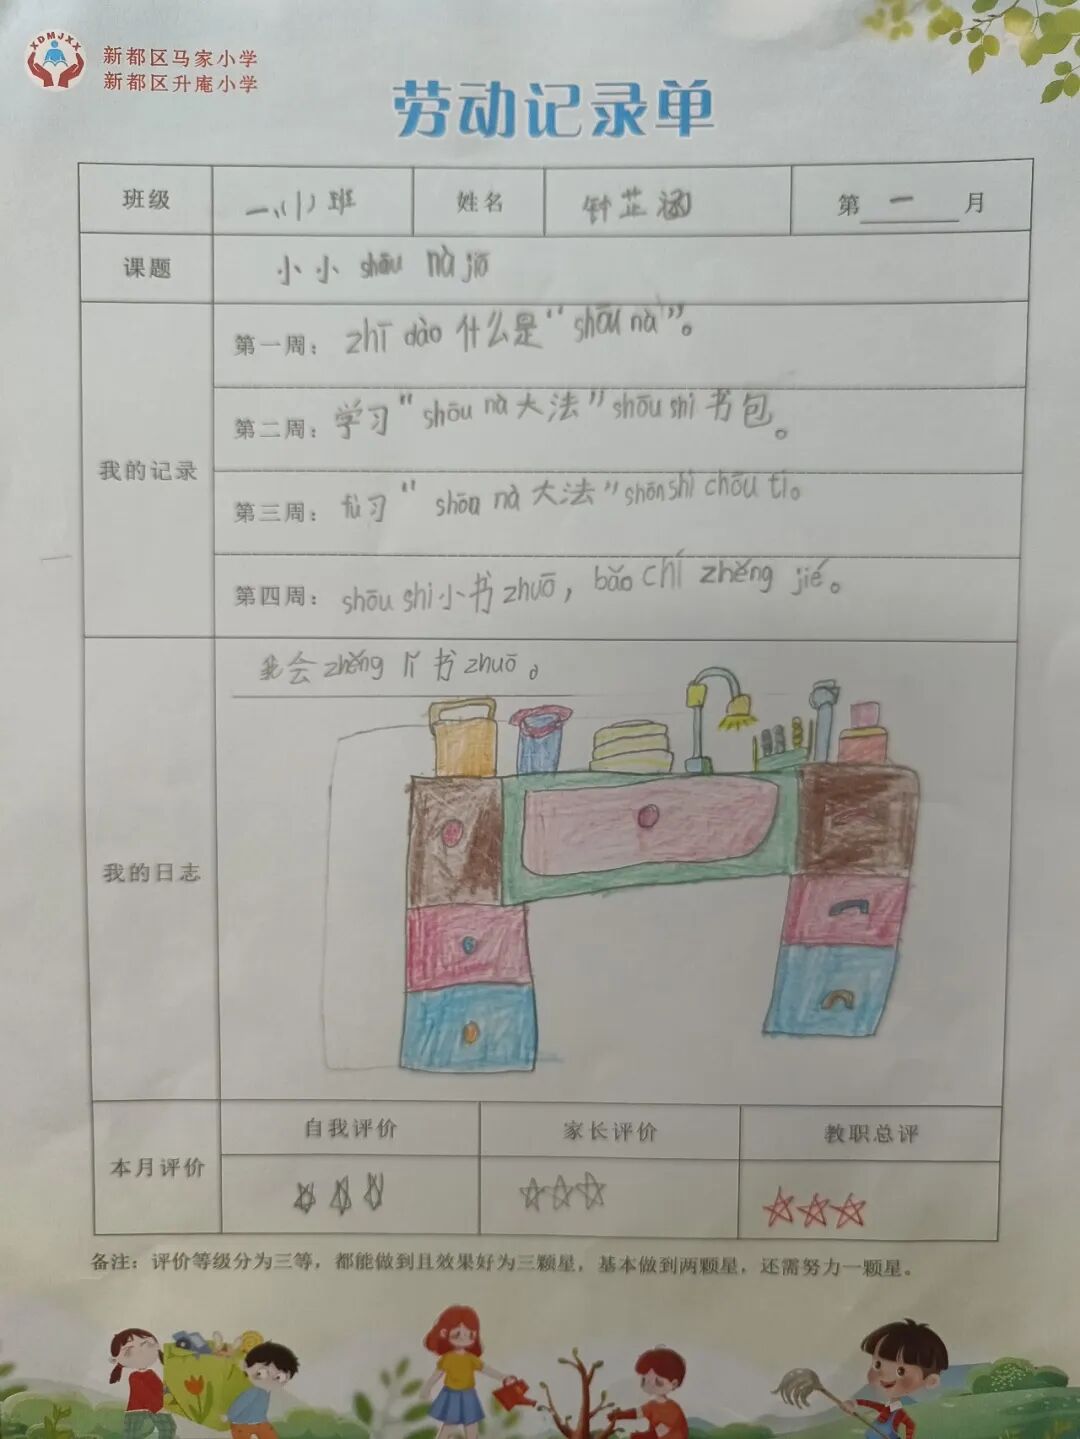 XDMJXX
新都区马家小学
新都区升庵小学
劳动记录单
班级 一、(1)班 姓名 钟芷涵 第一月
课题 小小 shōu nà jiā
我的记录
第一周：zhī dào 什么是“shōu nà”。
第二周：学习“shōu nà 大法”shōu shi 书包。
第三周：fù习“shōu nà 大法”shōu shi chōu ti。
第四周：shōu shi 小书 zhuō，bǎo chí zhěng jié。
我的日志
我会 zhěng lǐ 书 zhuō。
本月评价
自我评价 家长评价 教职总评
备注：评价等级分为三等，都能做到且效果好为三颗星，基本做到两颗星，还需努力一颗星。